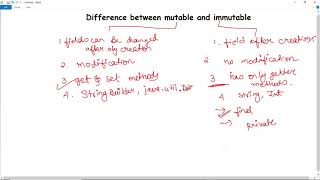 Difference between mutable and immutable
1. fields can be changed
after obj creation
2. modification
3 get & set methods
4. StringBuilder, java.util.Date
1. field after creations
2. no modification
3 has only getter
methods.
4 string, Int
→ final
→ private